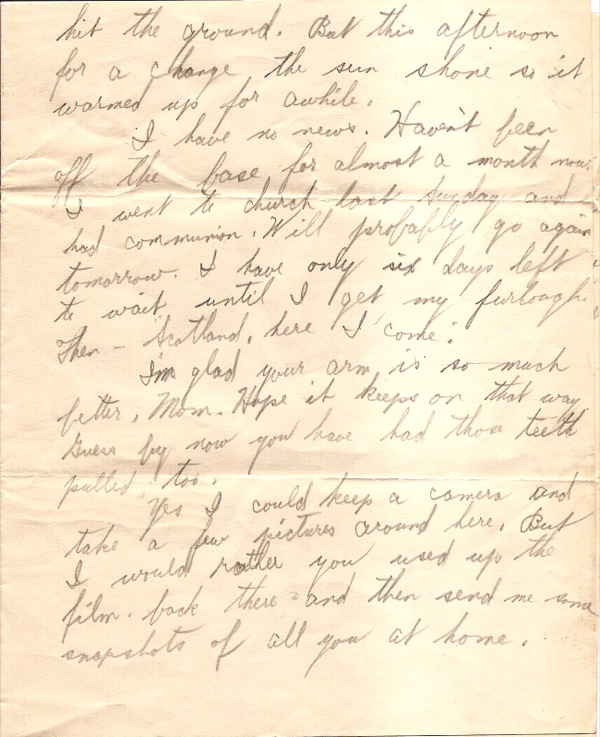 hit the ground. But this afternoon
for a change the sun shone so it
warmed up for awhile.
I have no news. Haven't been
off the base for almost a month now.
I went to church last Sunday and
had communion. Will probably go again
tomorrow. I have only six days left
to wait until I get my furlough.
Then - Scotland, here I come!
I'm glad your arm is so much
better, Mom. Hope it keeps on that way
Guess by now you have had those teeth
pulled too.
Yes I could keep a camera and
take a few pictures around here. But
I would rather you used up the
film back there and then send me some
snapshots of all you at home.